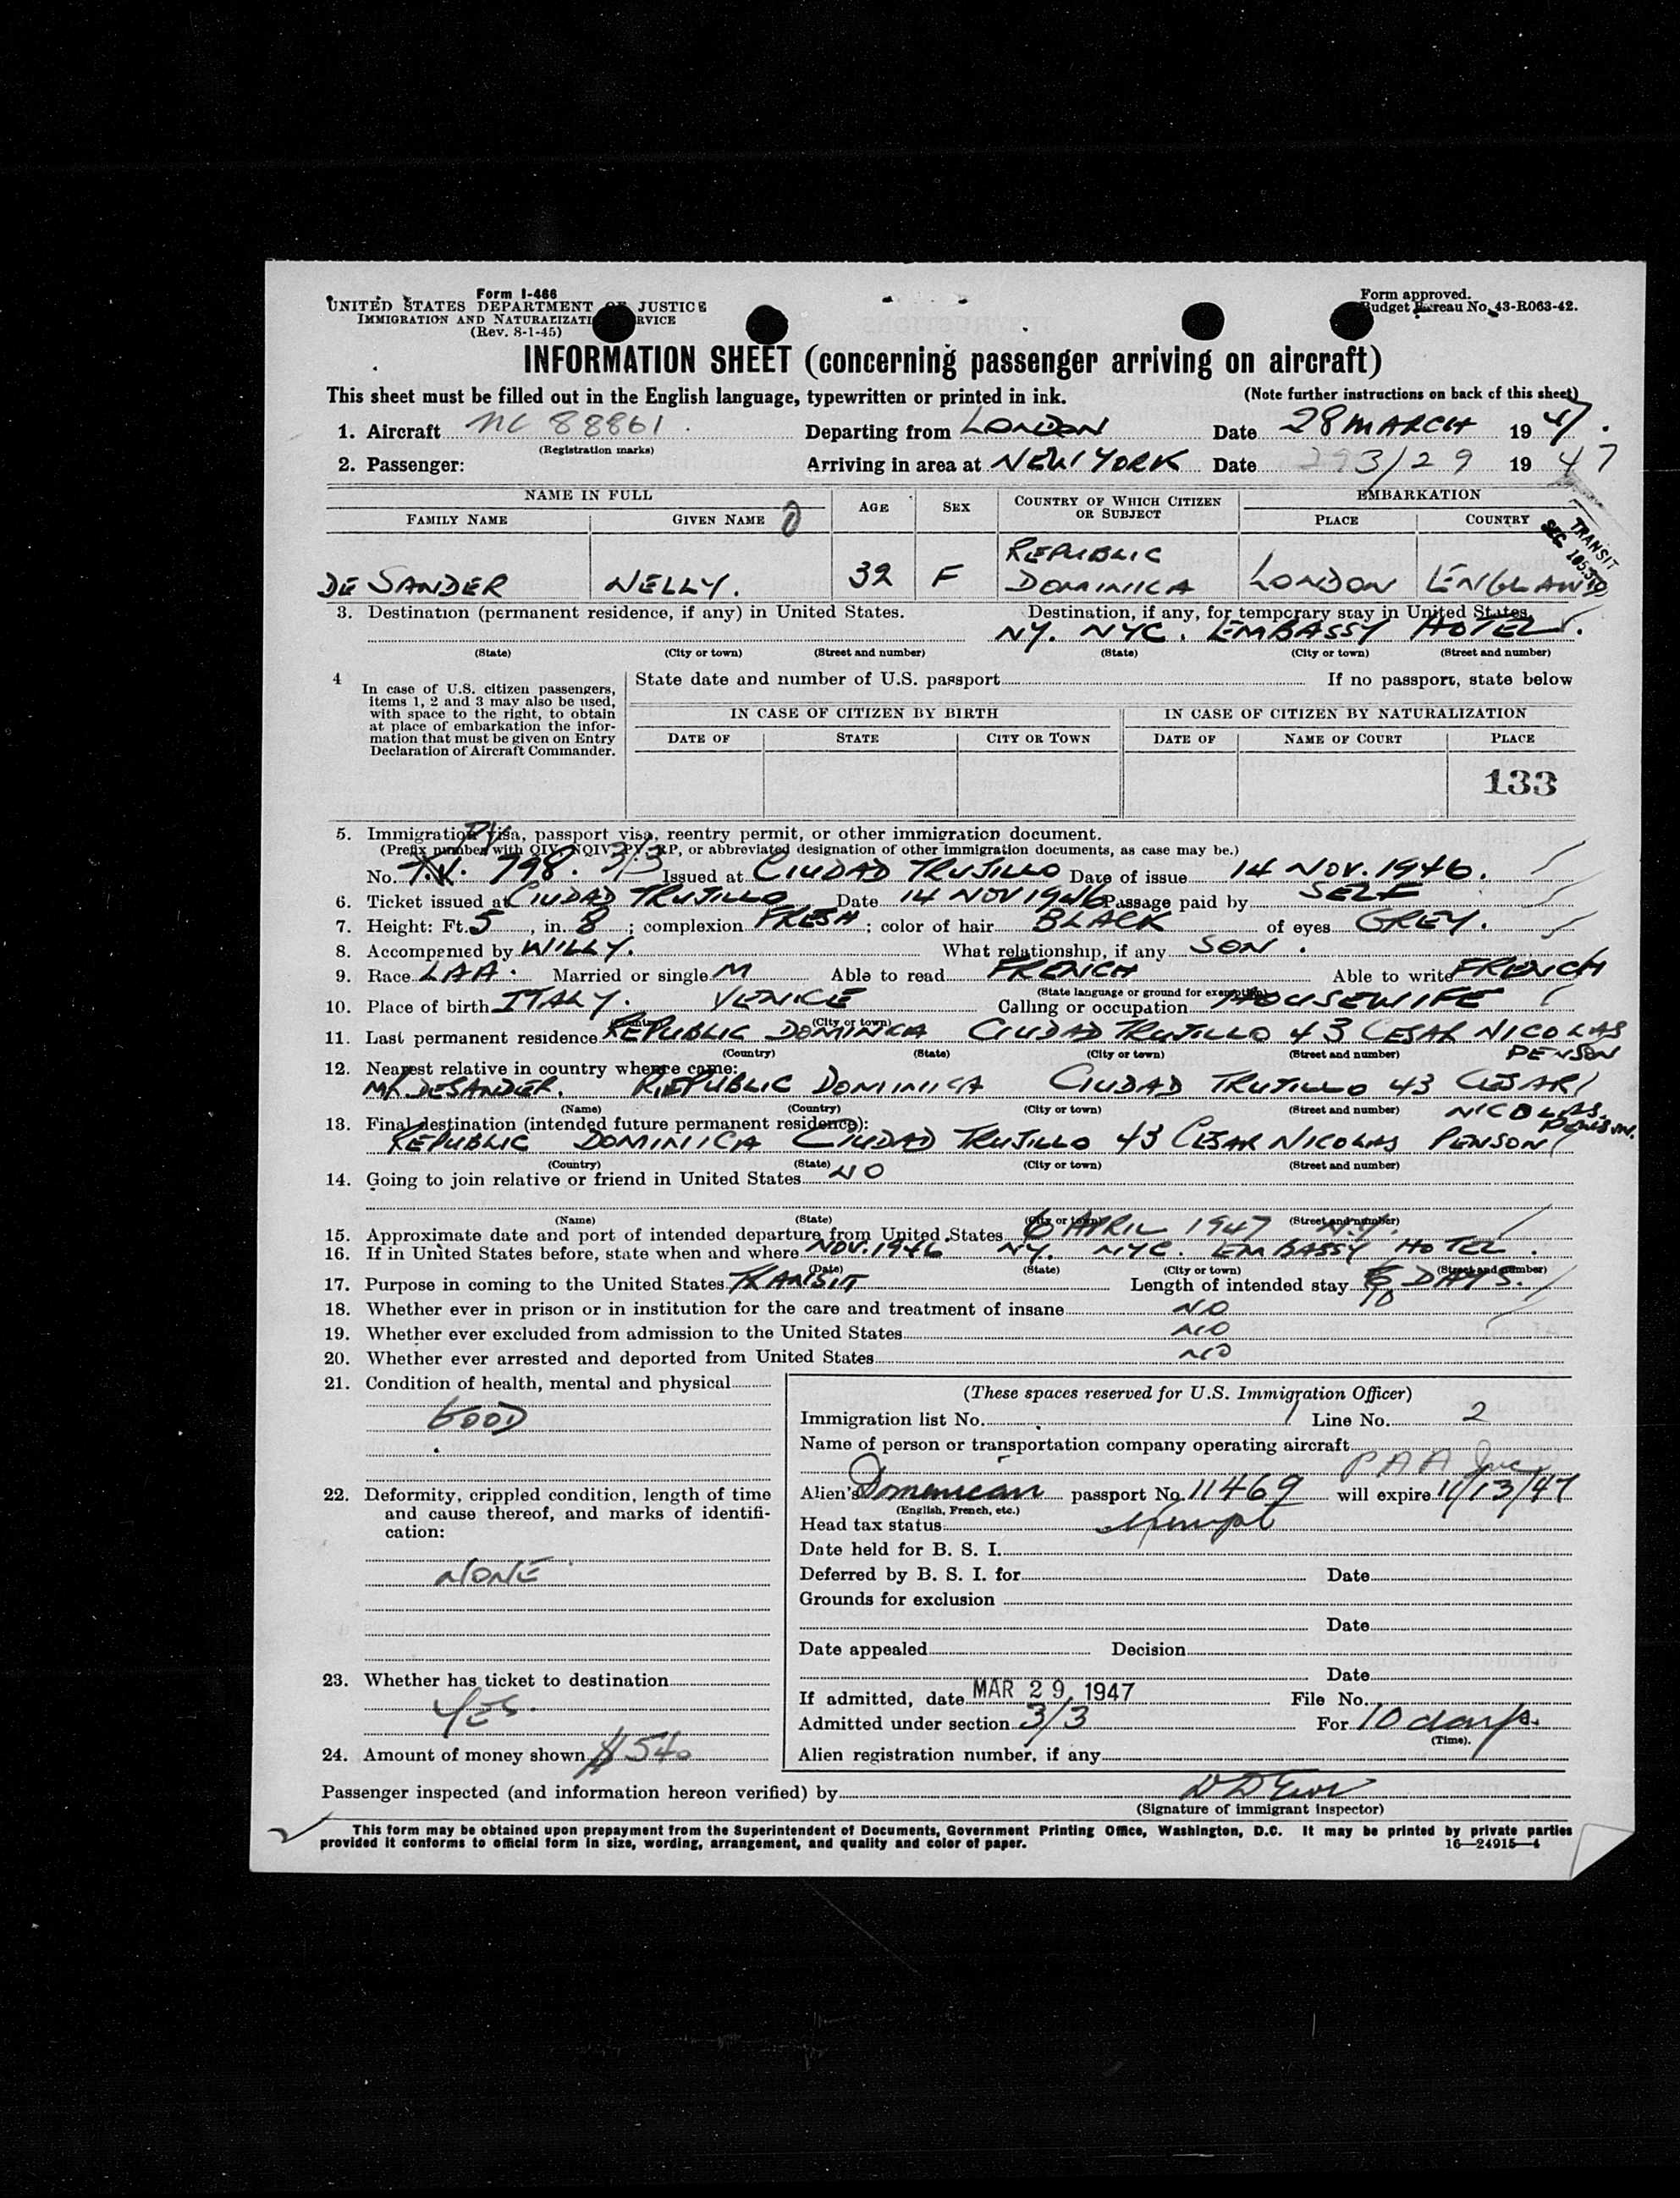 Form I-466
UNITED STATES DEPARTMENT OF JUSTICE
IMMIGRATION AND NATURALIZATI RVICE
(Rev. 8-1-45)
Form approved.
udget Bureau No. 43-R063-42.
INFORMATION SHEET (concerning passenger arriving on aircraft)
This sheet must be filled out in the English language, typewritten or printed in ink. (Note further instructions on back of this sheet)
1. Aircraft NC 88861. Departing from LONDON Date 28 MARCH 1947.
(Registration marks)
2. Passenger: Arriving in area at NEW YORK Date 3/29 1947
NAME IN FULL AGE SEX COUNTRY OF WHICH CITIZEN OR SUBJECT EMBARKATION
FAMILY NAME GIVEN NAME PLACE COUNTRY
TRANSIT
SEC 105.3(
DE SANDER NELLY. 32 F REPUBLIC DOMINIICA LONDON ENGLAND
3. Destination (permanent residence, if any) in United States. Destination, if any, for temporary stay in United States.
NY. NYC. EMBASSY HOTEL.
(State) (City or town) (Street and number) (State) (City or town) (Street and number)
4 In case of U.S. citizen passengers, items 1, 2 and 3 may also be used, with space to the right, to obtain at place of embarkation the information that must be given on Entry Declaration of Aircraft Commander.
State date and number of U.S. passport If no passport, state below
IN CASE OF CITIZEN BY BIRTH IN CASE OF CITIZEN BY NATURALIZATION
DATE OF STATE CITY OR TOWN DATE OF NAME OF COURT PLACE
133
5. Immigration visa, passport visa, reentry permit, or other immigration document.
(Prefix number with QIV, NQIV, PV, RP, or abbreviated designation of other immigration documents, as case may be.)
No. T.V. 798. 3/3 Issued at CIUDAD TRUJILLO Date of issue 14 NOV. 1946.
6. Ticket issued at CIUDAD TRUJILLO Date 14 NOV 1946 Passage paid by SELF
7. Height: Ft. 5, in. 8; complexion FRESH; color of hair BLACK of eyes GREY.
8. Accompanied by WILLY. What relationship, if any SON.
9. Race LAA. Married or single M Able to read FRENCH Able to write FRENCH
(State language or ground for exemption)
10. Place of birth ITALY. VENICE Calling or occupation HOUSEWIFE
(Country) (City or town)
11. Last permanent residence REPUBLIC DOMINICA CIUDAD TRUJILLO 43 CESAR NICOLAS PENSON
(Country) (State) (City or town) (Street and number)
12. Nearest relative in country whence came:
MR. DESANDER. REPUBLIC DOMINIICA CIUDAD TRUTILLO 43 CESAR NICOLAS PENSON.
(Name) (Country) (City or town) (Street and number)
13. Final destination (intended future permanent residence):
REPUBLIC DOMINIICA CIUDAD TRUJILLO 43 CESAR NICOLAS PENSON
(Country) (State) (City or town) (Street and number)
14. Going to join relative or friend in United States NO
(Name) (State) (City or town) (Street and number)
15. Approximate date and port of intended departure from United States 6 APRIL 1947 N.Y.
16. If in United States before, state when and where NOV. 1946 NY. NYC. EMBASSY HOTEL.
(Date) (State) (City or town) (Street and number)
17. Purpose in coming to the United States TRANSIT Length of intended stay 10 DAYS.
18. Whether ever in prison or in institution for the care and treatment of insane NO
19. Whether ever excluded from admission to the United States NO
20. Whether ever arrested and deported from United States NO
21. Condition of health, mental and physical
GOOD
22. Deformity, crippled condition, length of time and cause thereof, and marks of identification:
NONE
23. Whether has ticket to destination
YES.
24. Amount of money shown $540
(These spaces reserved for U.S. Immigration Officer)
Immigration list No. 1 Line No. 2
Name of person or transportation company operating aircraft
PAA Inc
Alien's Domenican passport No. 11469 will expire 11/13/47
(English, French, etc.)
Head tax status: Exempt
Date held for B. S. I.
Deferred by B. S. I. for Date
Grounds for exclusion
Date
Date appealed Decision
Date
If admitted, date MAR 29, 1947 File No.
Admitted under section 3/3 For 10 days.
(Time).
Alien registration number, if any
Passenger inspected (and information hereon verified) by
(Signature of immigrant inspector)
This form may be obtained upon prepayment from the Superintendent of Documents, Government Printing Office, Washington, D.C. It may be printed by private parties
provided it conforms to official form in size, wording, arrangement, and quality and color of paper. 16—24915-4